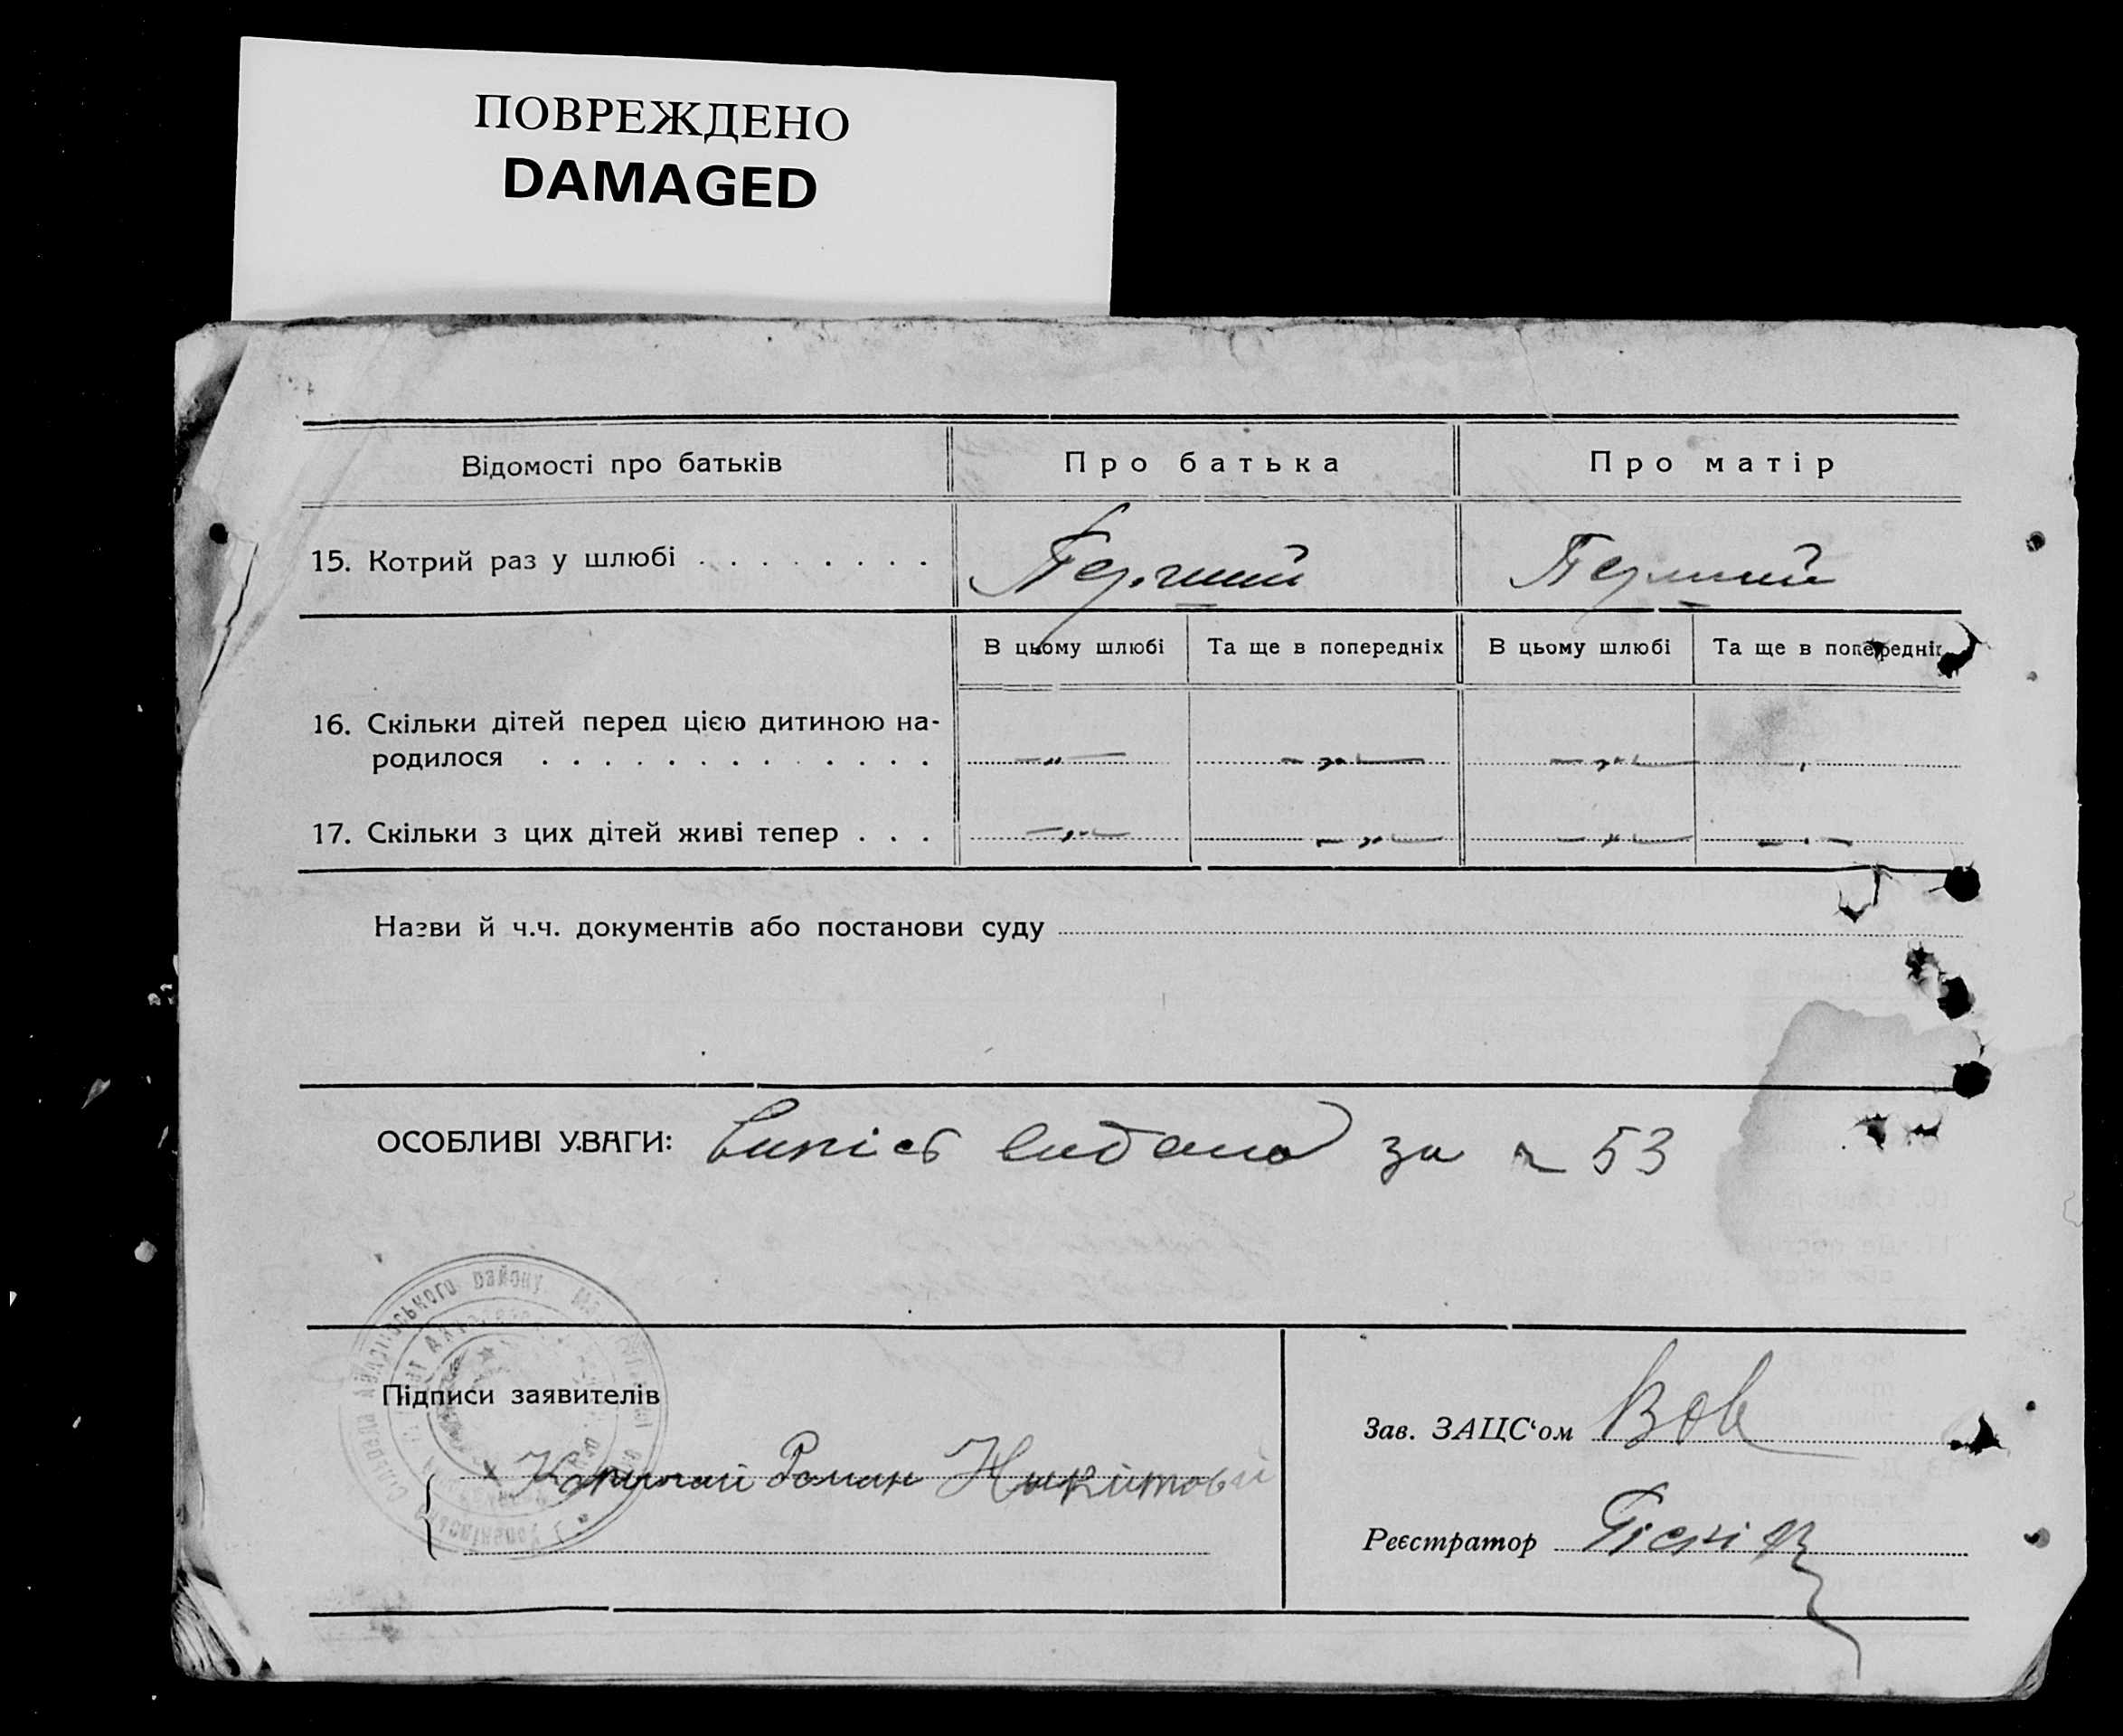 ПОВРЕЖДЕНО
DAMAGED
Відомості про батьків
Про батька
Про матір
15. Котрий раз у шлюбі . . . . . . . .
Перший
Перший
В цьому шлюбі
Та ще в попередніх
В цьому шлюбі
Та ще в попередніх
16. Скільки дітей перед цією дитиною на-
родилося . . . . . . . . . . . . .
— „ —
— „ —
— „ —
17. Скільки з цих дітей живі тепер . . .
— „ —
— „ —
— „ —
Назви й ч.ч. документів або постанови суду
ОСОБЛИВІ УВАГИ: Випісь видана за № 53
району
Підписи заявителів
Роман
Зав. ЗАЦС‘ом
Реєстратор